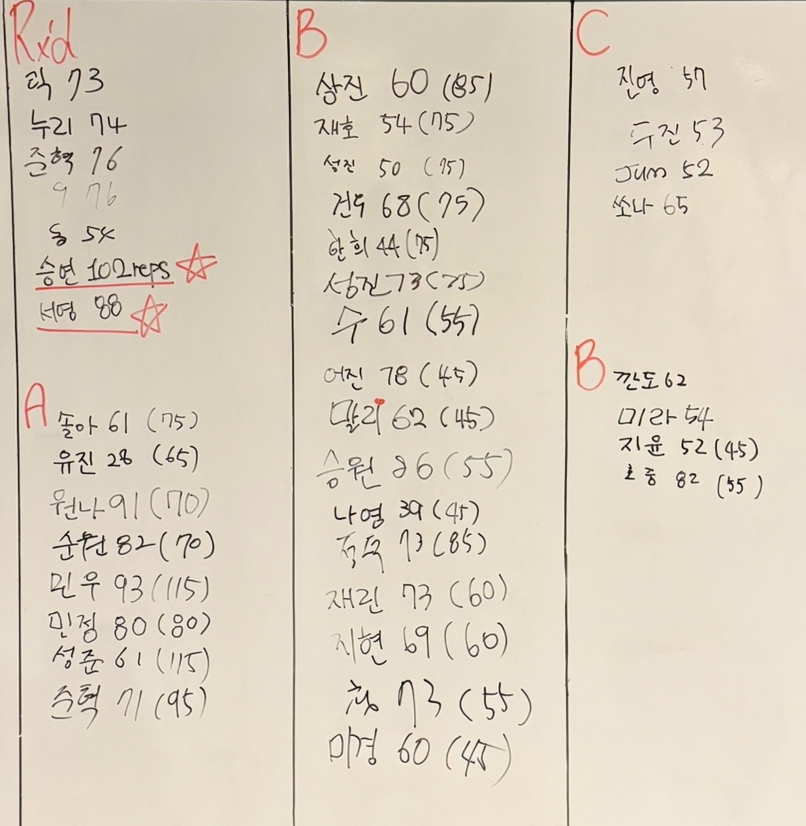 Rx'd
탁 73
누리 74
준혁 76
9 76
동 54
승연 102reps
서영 88
A
솔아 61 (75)
유진 28 (65)
원나 91 (70)
순원 82 (70)
민우 93 (115)
민정 80 (80)
성준 61 (115)
준혁 71 (95)
B
상진 60 (85)
재호 54 (75)
성진 50 (75)
건우 68 (75)
한희 44 (75)
성진 73 (75)
수 61 (55)
어진 78 (45)
말리 62 (45)
승원 86 (55)
나영 39 (45)
73 (85)
재린 73 (60)
지현 69 (60)
73 (55)
미경 60 (45)
C
진영 57
두진 53
Jum 52
쏘나 65
B
깐도 62
미라 54
지윤 52 (45)
호중 82 (55)